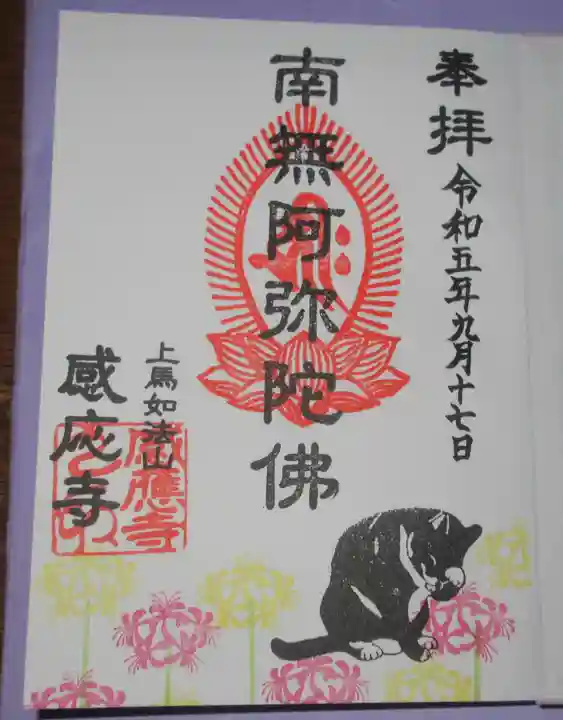 奉拝
令和五年九月十七日
南無阿弥陀佛
上馬如法山
感応寺
感應寺